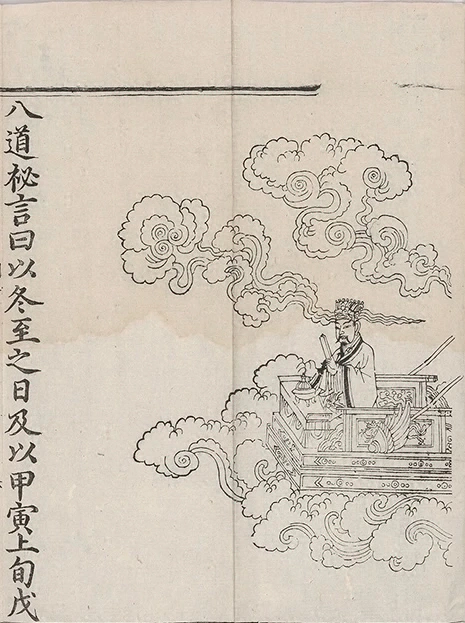 八道祕言曰以冬至之日及以甲寅上旬戊